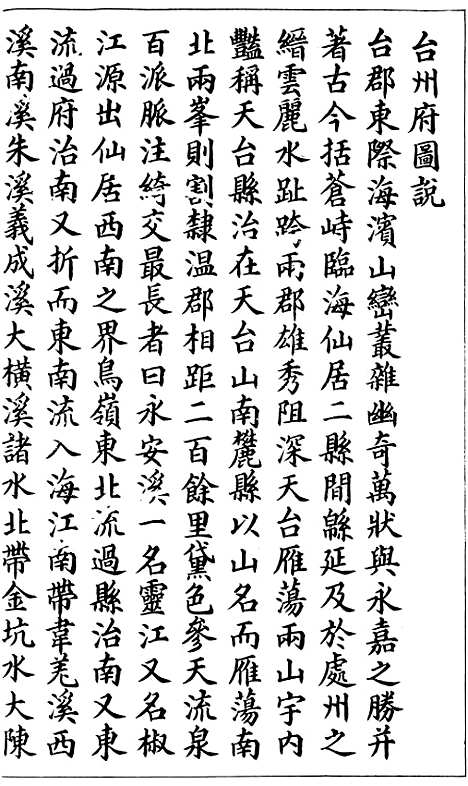 台州府圖說
台郡東際海濱山巒叢雜幽奇萬狀與永嘉之勝并
著古今括蒼峙臨海仙居二縣間緜延及於處州之
縉雲麗水趾跨兩郡雄秀阻深天台雁蕩兩山宇內
豔稱天台縣治在天台山南麓縣以山名而雁蕩南
北兩峯則割隸温郡相距二百餘里黛色參天流泉
百派脈注綺交最長者曰永安溪一名靈江又名椒
江源出仙居西南之界鳥嶺東北流過縣治南又東
流過府治南又折而東南流入海江南帶韋羌溪西
溪南溪朱溪義成溪大橫溪諸水北帶金坑水大陳